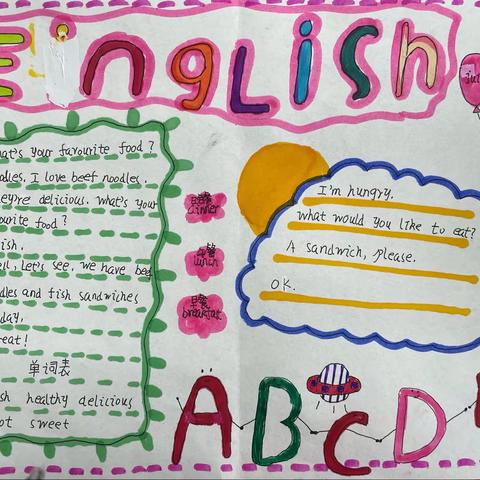 English
hat's your favourite food ?
odles. I love beef noodles.
ey're delicious. what's your
ourite food ?
ish.
ell, Let's see. we have beef
dles and fish sandwiches
day.
reat!
单词表
sh healthy delicious
ot sweet
晚餐
dinner
午餐
lunch
早餐
breakfast
I'm hungry.
what would you like to eat?
A sandwich, please.
OK.
A B C D